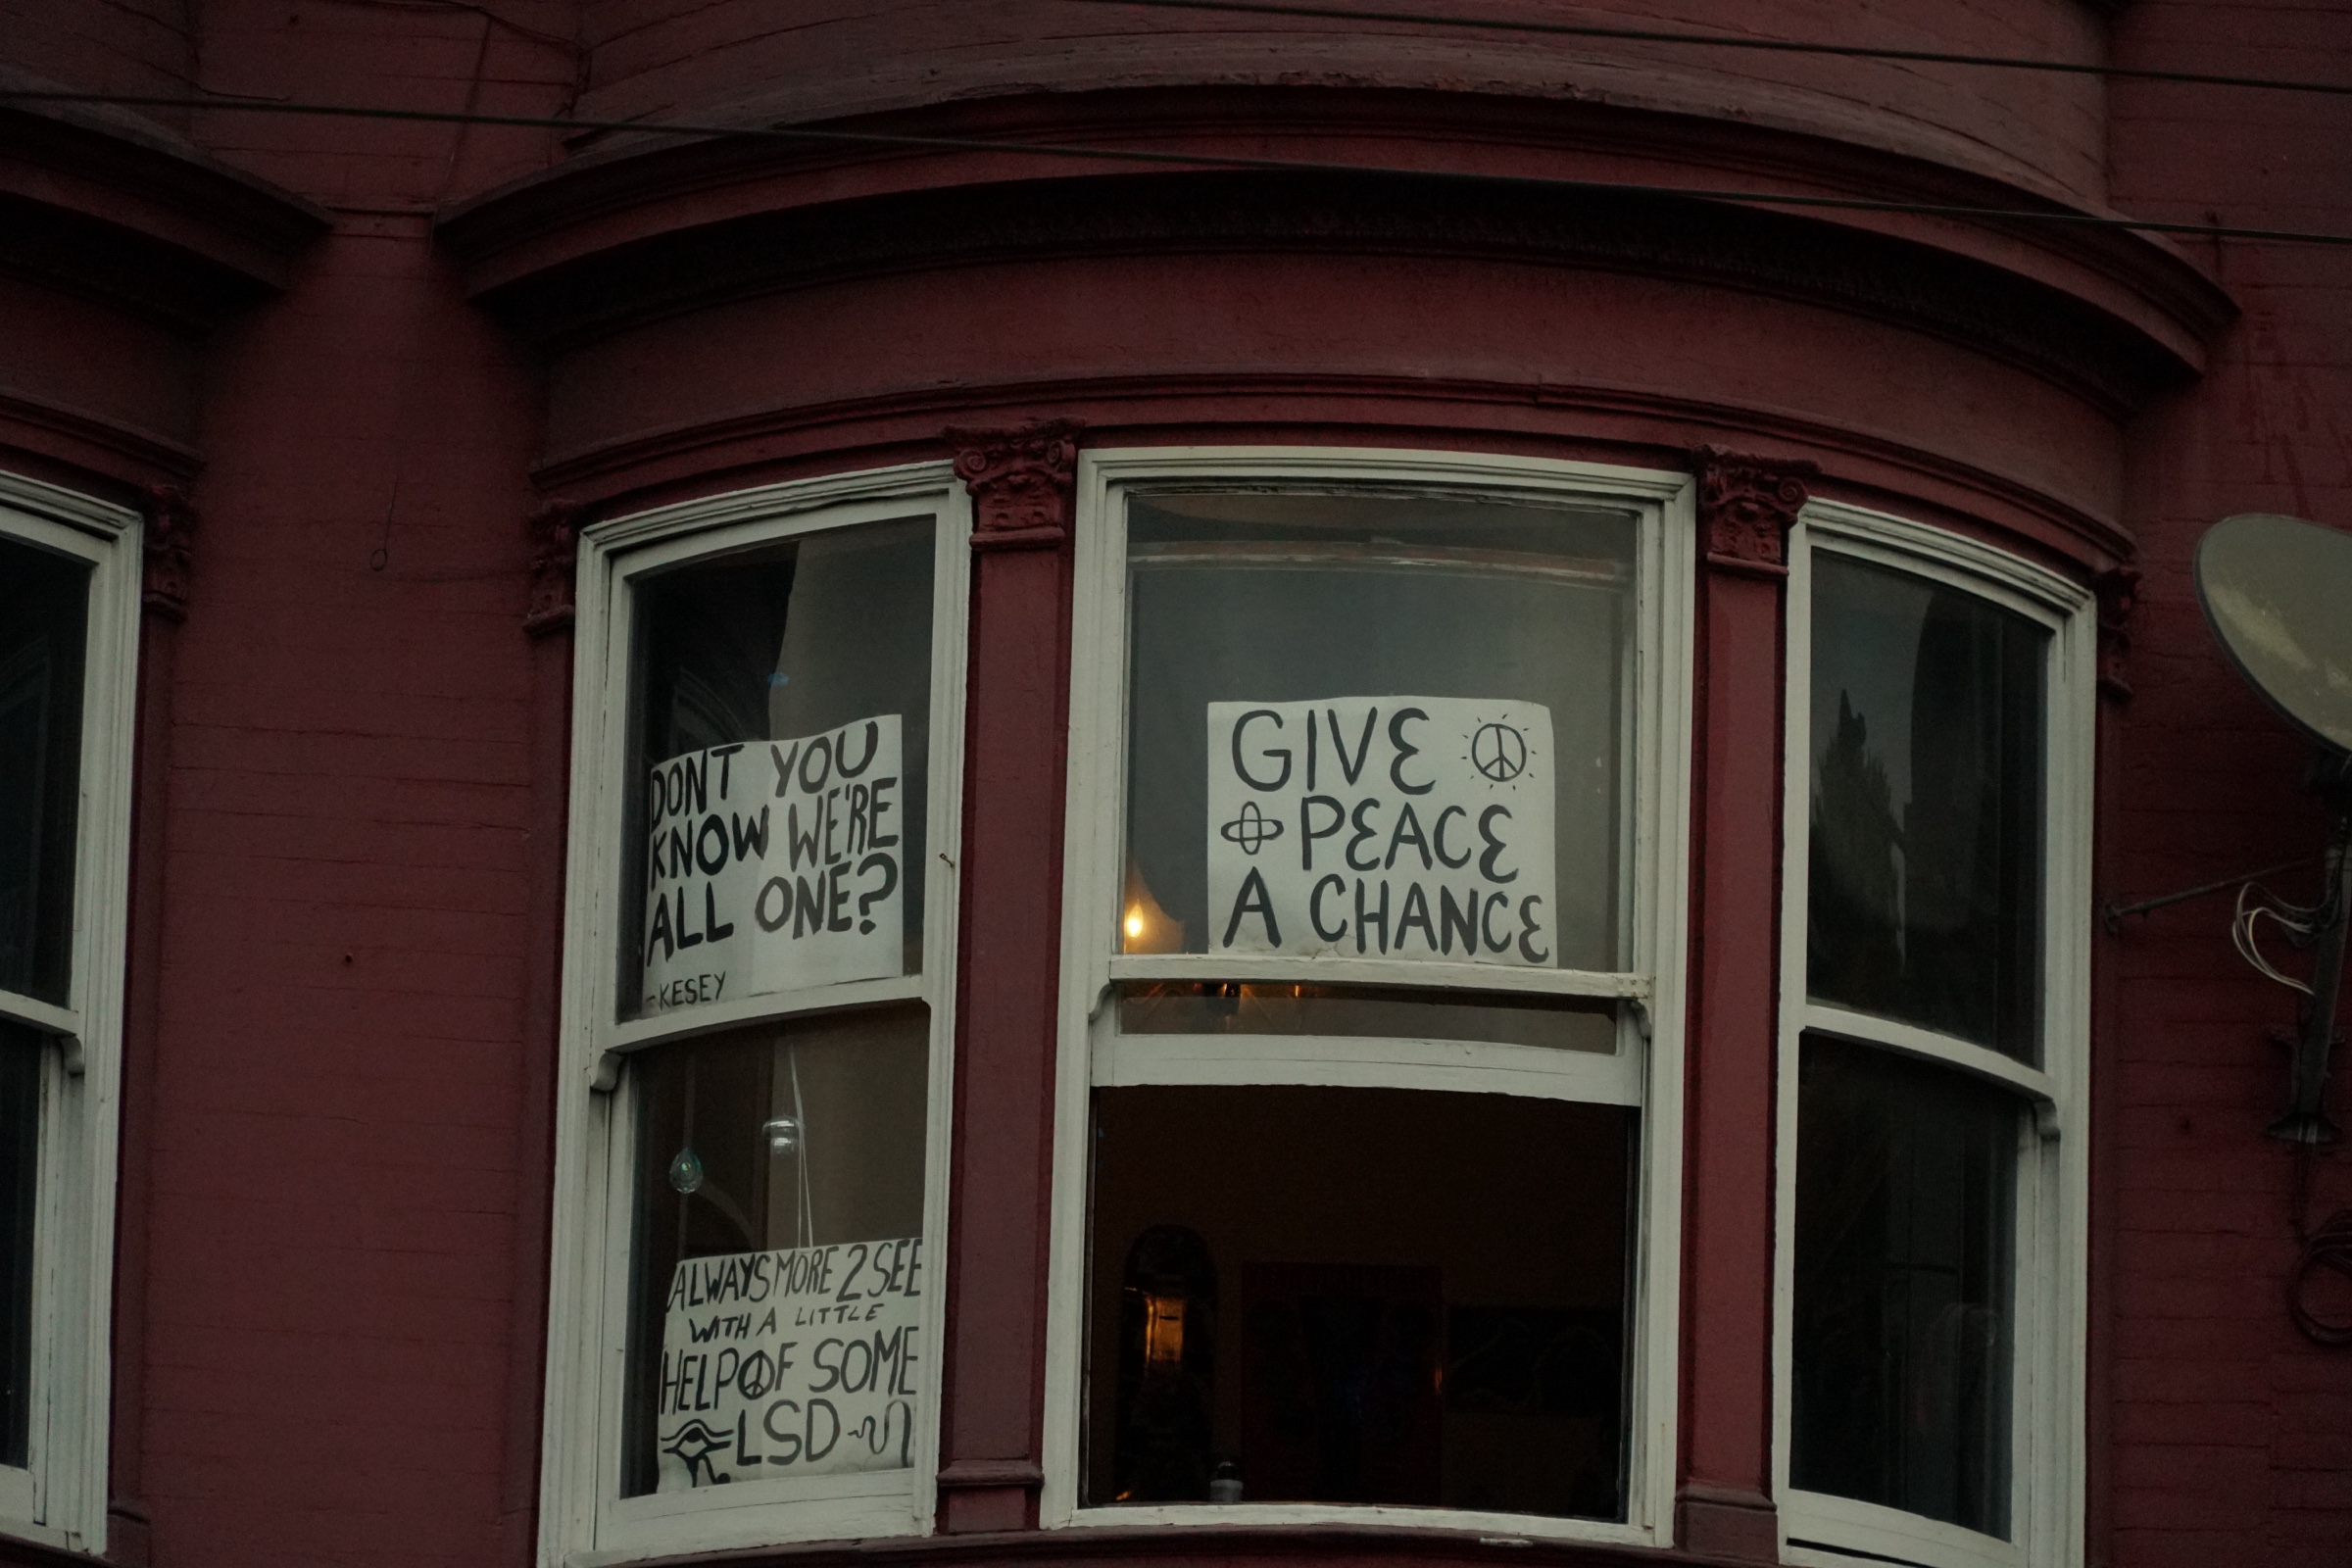 DONT YOU
KNOW WE'RE
ALL ONE?
-KESEY
GIVE
PEACE
A CHANCE
ALWAYS MORE 2 SEE
WITH A LITTLE
HELP OF SOME
LSD